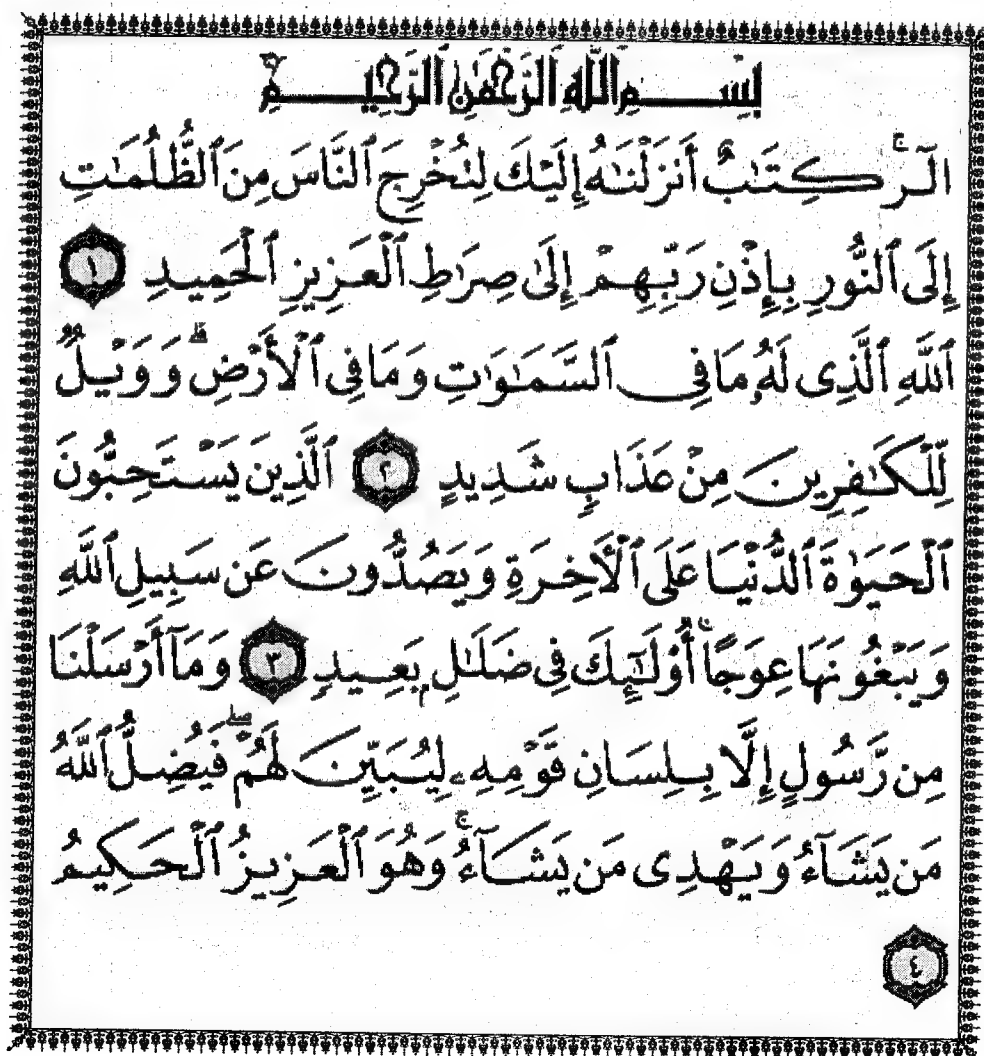 بِسْمِ ٱللَّهِ ٱلرَّحْمَٰنِ ٱلرَّحِيمِ
الٓرۚ كِتَٰبٌ أَنزَلْنَٰهُ إِلَيْكَ لِتُخْرِجَ ٱلنَّاسَ مِنَ ٱلظُّلُمَٰتِ
إِلَى ٱلنُّورِ بِإِذْنِ رَبِّهِمْ إِلَىٰ صِرَٰطِ ٱلْعَزِيزِ ٱلْحَمِيدِ ١
ٱللَّهِ ٱلَّذِى لَهُۥ مَا فِى ٱلسَّمَٰوَٰتِ وَمَا فِى ٱلْأَرْضِۗ وَوَيْلٌ
لِّلْكَٰفِرِينَ مِنْ عَذَابٍ شَدِيدٍ ٢ ٱلَّذِينَ يَسْتَحِبُّونَ
ٱلْحَيَوٰةَ ٱلدُّنْيَا عَلَى ٱلْأَخِرَةِ وَيَصُدُّونَ عَن سَبِيلِ ٱللَّهِ
وَيَبْغُونَهَا عِوَجًاۚ أُو۟لَٰٓئِكَ فِى ضَلَٰلٍۭ بَعِيدٍ ٣ وَمَآ أَرْسَلْنَا
مِن رَّسُولٍ إِلَّا بِلِسَانِ قَوْمِهِۦ لِيُبَيِّنَ لَهُمْۖ فَيُضِلُّ ٱللَّهُ
مَن يَشَآءُ وَيَهْدِى مَن يَشَآءُۚ وَهُوَ ٱلْعَزِيزُ ٱلْحَكِيمُ
٤